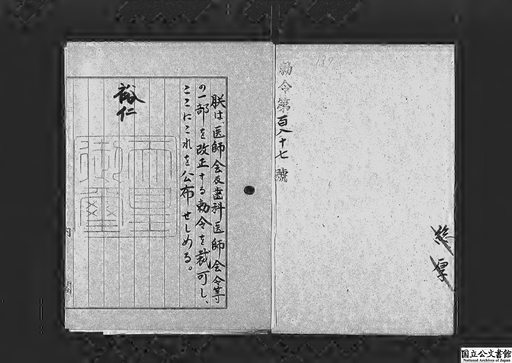 勅令第百八十七號
朕は医師会及歯科医師会令等
の一部を改正する勅令を裁可し、
ここにこれを公布せしめる。
裕仁
天皇
御璽
内閣
国立公文書館
National Archives of Japan